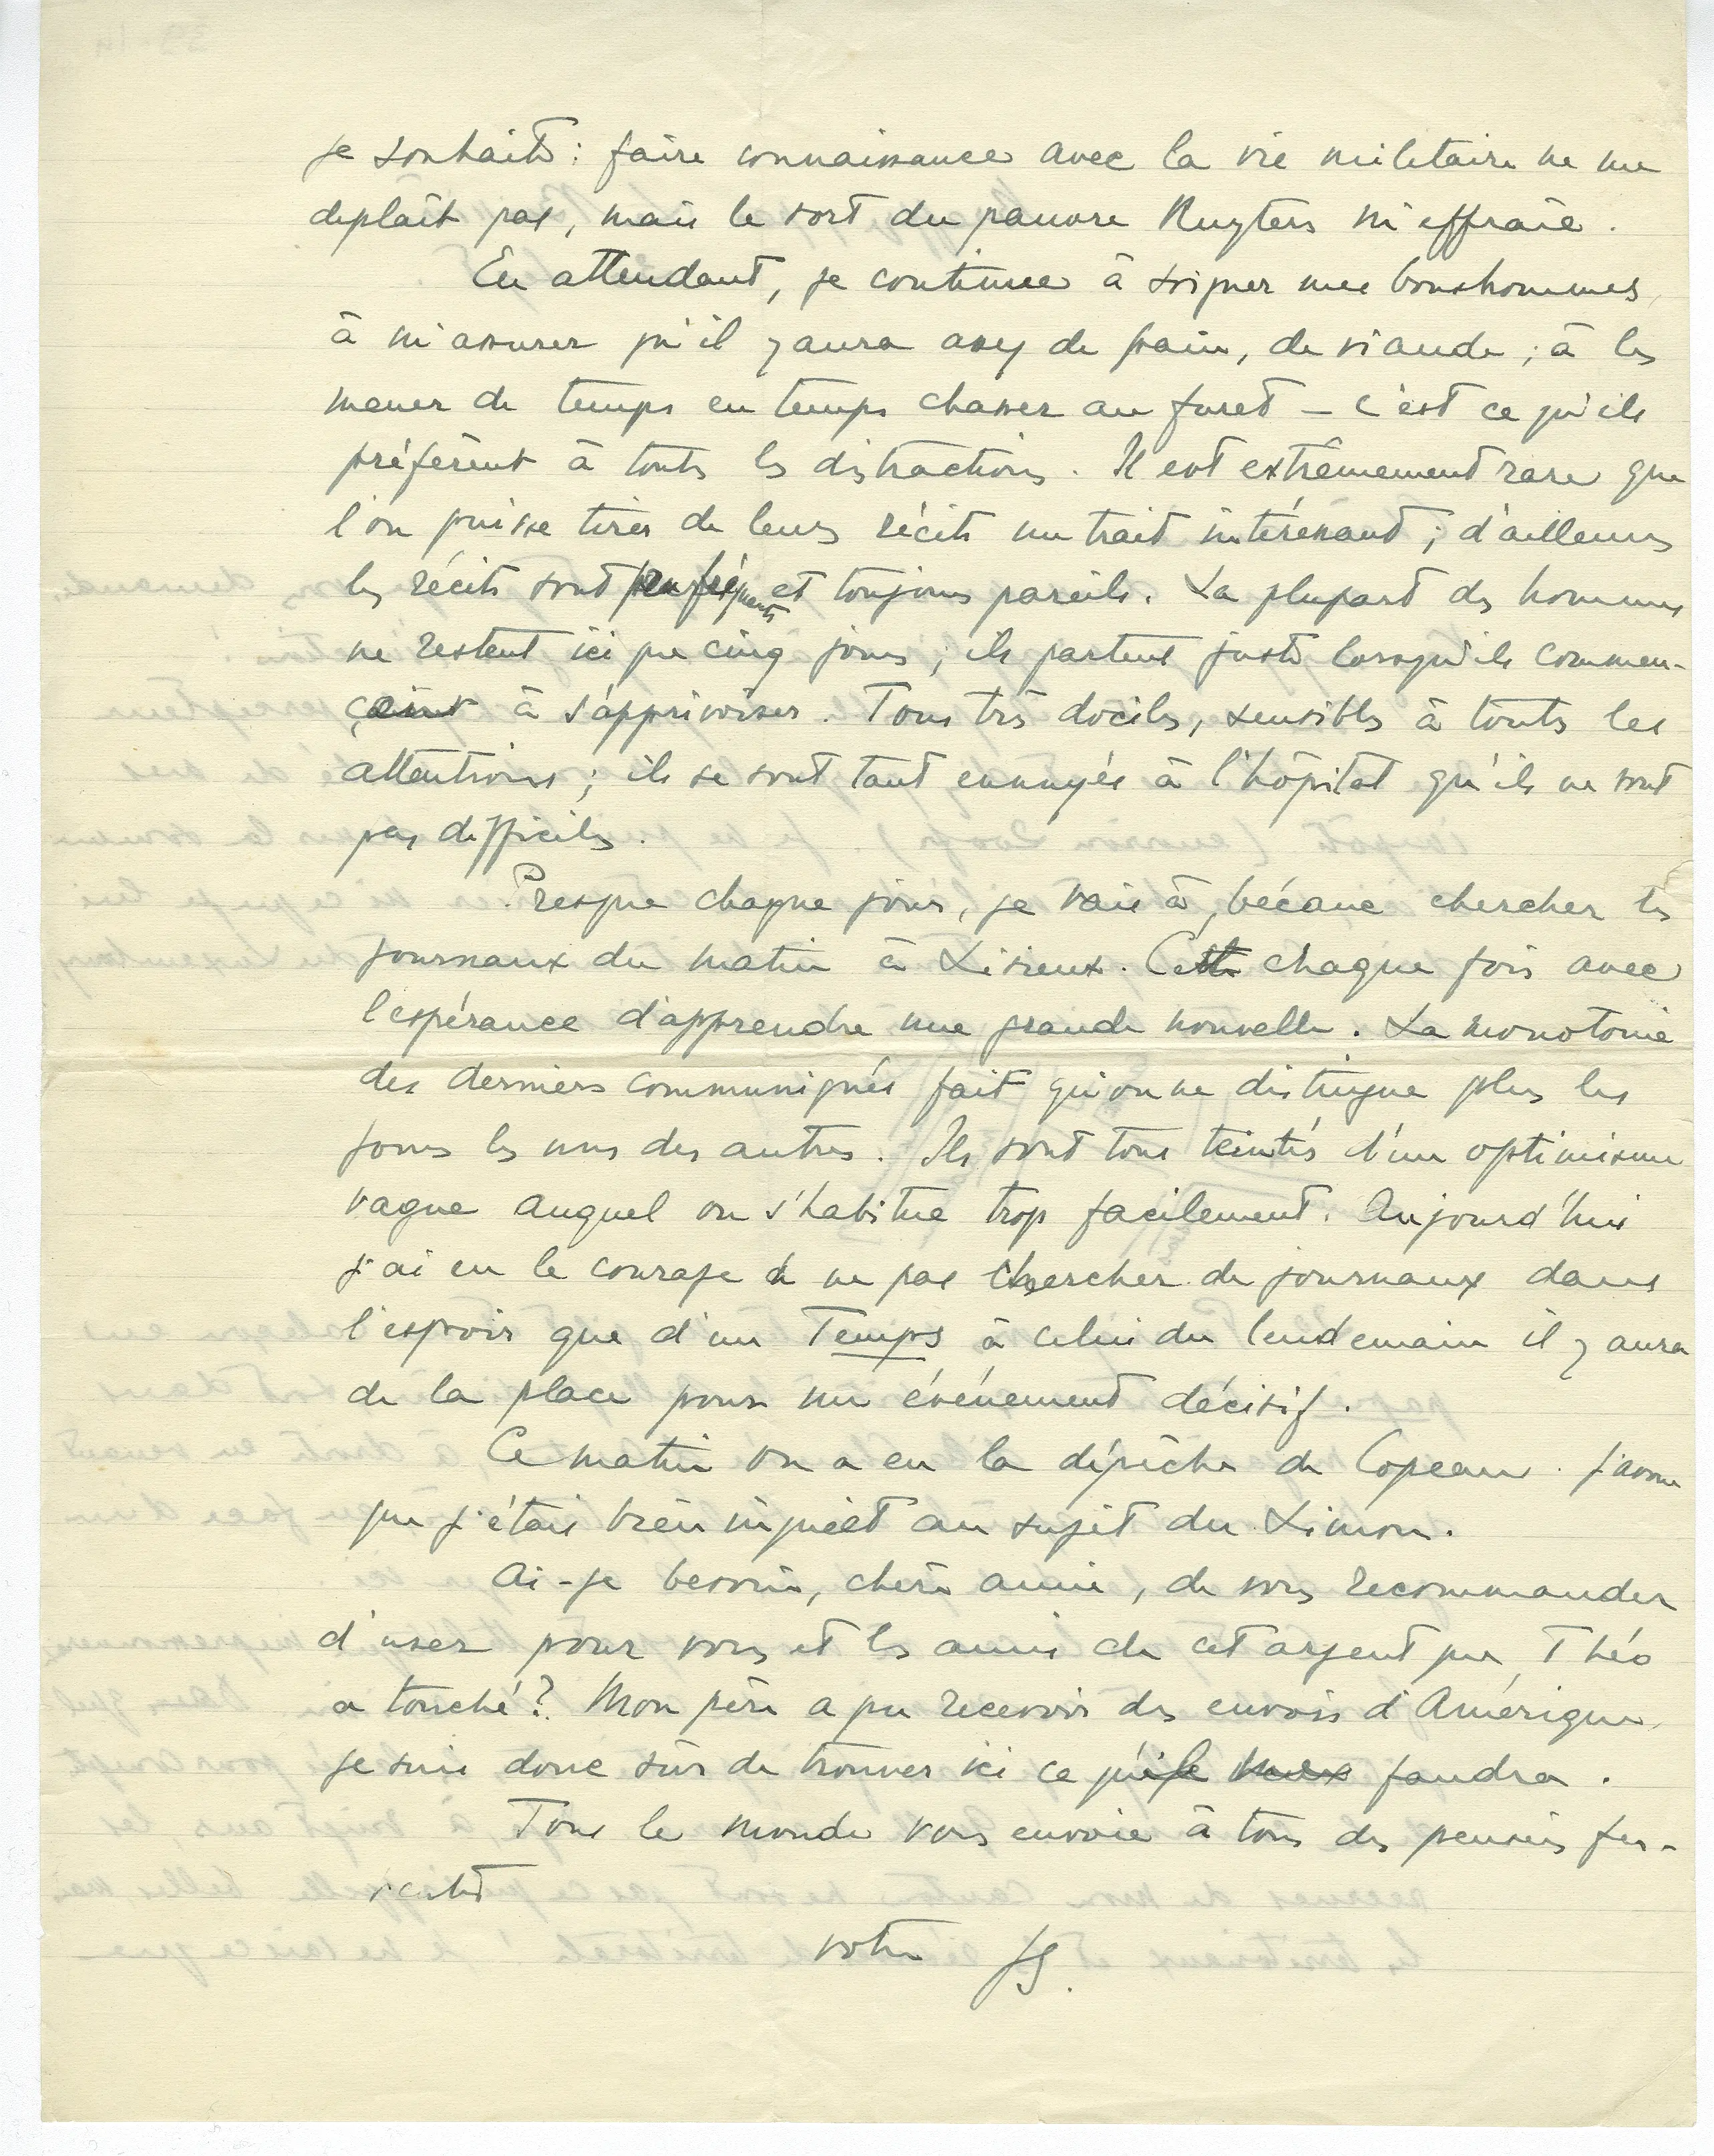 je souhaite : faire connaissance avec la vie militaire ne me
déplaît pas, mais le sort du pauvre Ruyters m'effraie.
En attendant, je continue à soigner mes bonshommes,
à m'assurer qu'il y aura assez de pain, de viande ; à les
mener de temps en temps chasser au furet – c'est ce qu'ils
préfèrent à toutes les distractions. Il est extrêmement rare que
l'on puisse tirer de leurs récits un trait intéressant ; d'ailleurs
les récits sont peu fréquents et toujours pareils. La plupart des hommes
ne restent ici que cinq jours ; ils partent juste lorsqu'ils commen-
çaient à s'apprivoiser. Tous très dociles, sensibles à toutes les
attentions ; ils se sont tant ennuyés à l'hôpital qu'ils ne sont
pas difficiles.
Presque chaque jour, je vais à bécane chercher les
journaux du matin à Lisieux. Cette chaque fois avec
l'espérance d'apprendre une grande nouvelle. La monotonie
des derniers communiqués fait qu'on ne distingue plus les
jours les uns des autres. Ils sont tous teintés d'un optimisme
vague auquel on s'habitue trop facilement. Aujourd'hui
j'ai eu le courage de ne pas chercher de journaux dans
l'espoir que d'un Temps à celui du lendemain il y aura
de la place pour un événement décisif.
Ce matin on a eu la dépêche de Copeau. J'avoue
que j'étais bien inquiet au sujet du Limon.
Ai-je besoin, chère amie, de vous recommander
d'user pour vous et les amis de cet argent que Théo
a touché ? Mon père a pu recevoir des envois d'Amérique,
je suis donc sûr de trouver ici ce qu'il faudra.
Tout le monde vous envoie à tous des pensées fer-
ventes
votre JS.